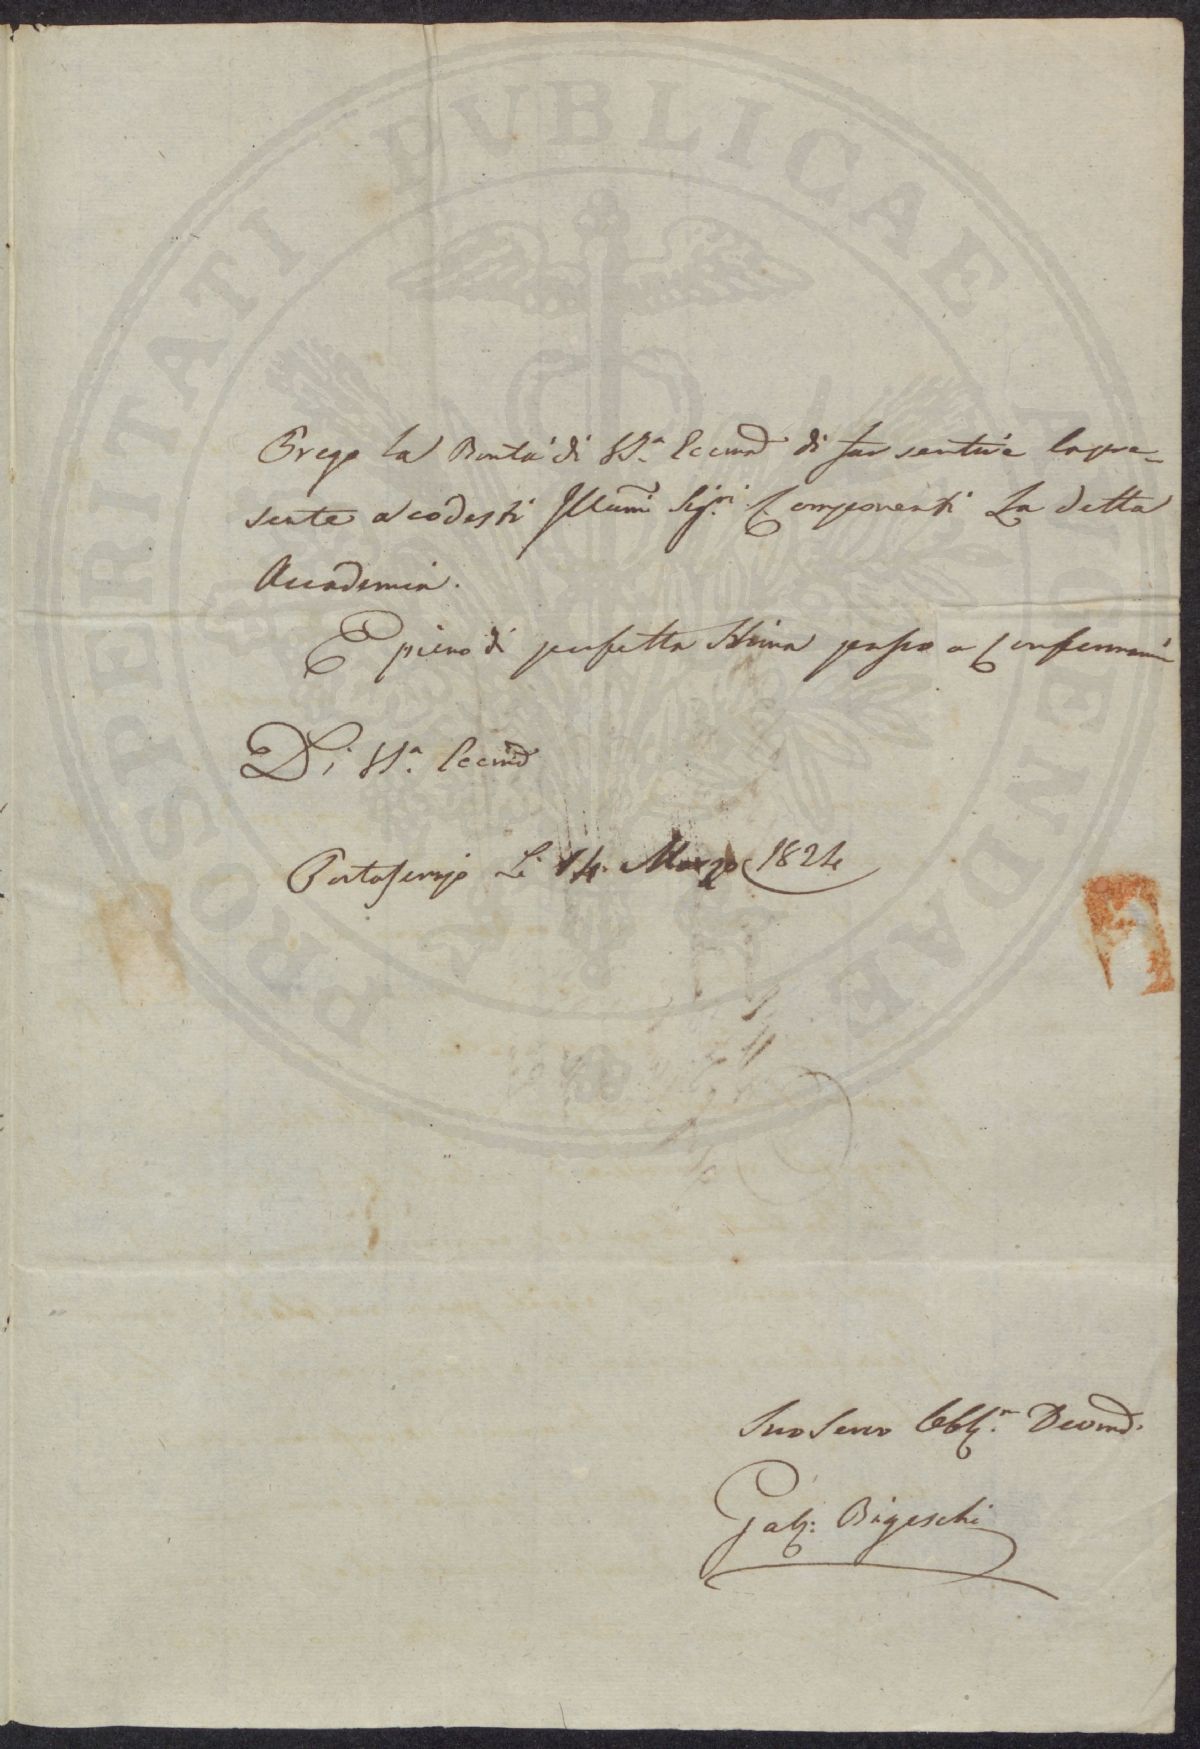 PROSPERITATI PUBLICAE AUGENDAE
Prego la Bontà di VS.a Eccma di far sentire lapre-
sente a codesti Illumi Sig.ri Componenti La detta
Accademia.
E pieno di perfetta Stima passo a Confermarmi
Di VS.a Eccma
Portoferrajo Li 14. Marzo 1824
Suo Servo Obb.o Devmo.
Gab: Bigeschi